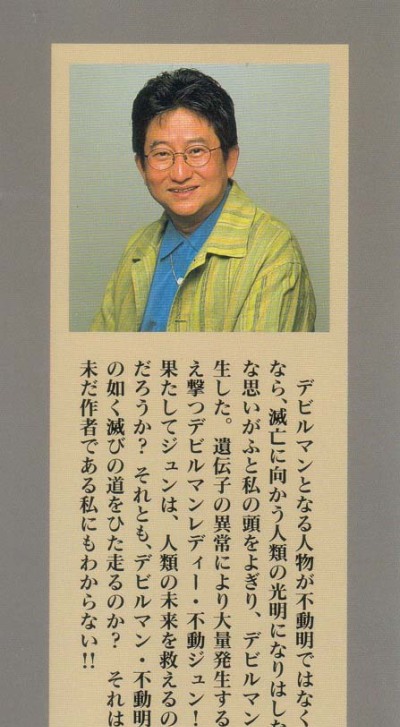 デビルマンとなる人物が不動明ではなく
なら、滅亡に向かう人類の光明になりはした
な思いがふと私の頭をよぎり、デビルマン
生した。遺伝子の異常により大量発生する
え撃つデビルマンレディー・不動ジュン！
果たしてジュンは、人類の未来を救えるの
だろうか？ それとも、デビルマン・不動明
の如く滅びの道をひた走るのか？ それは
未だ作者である私にもわからない!!